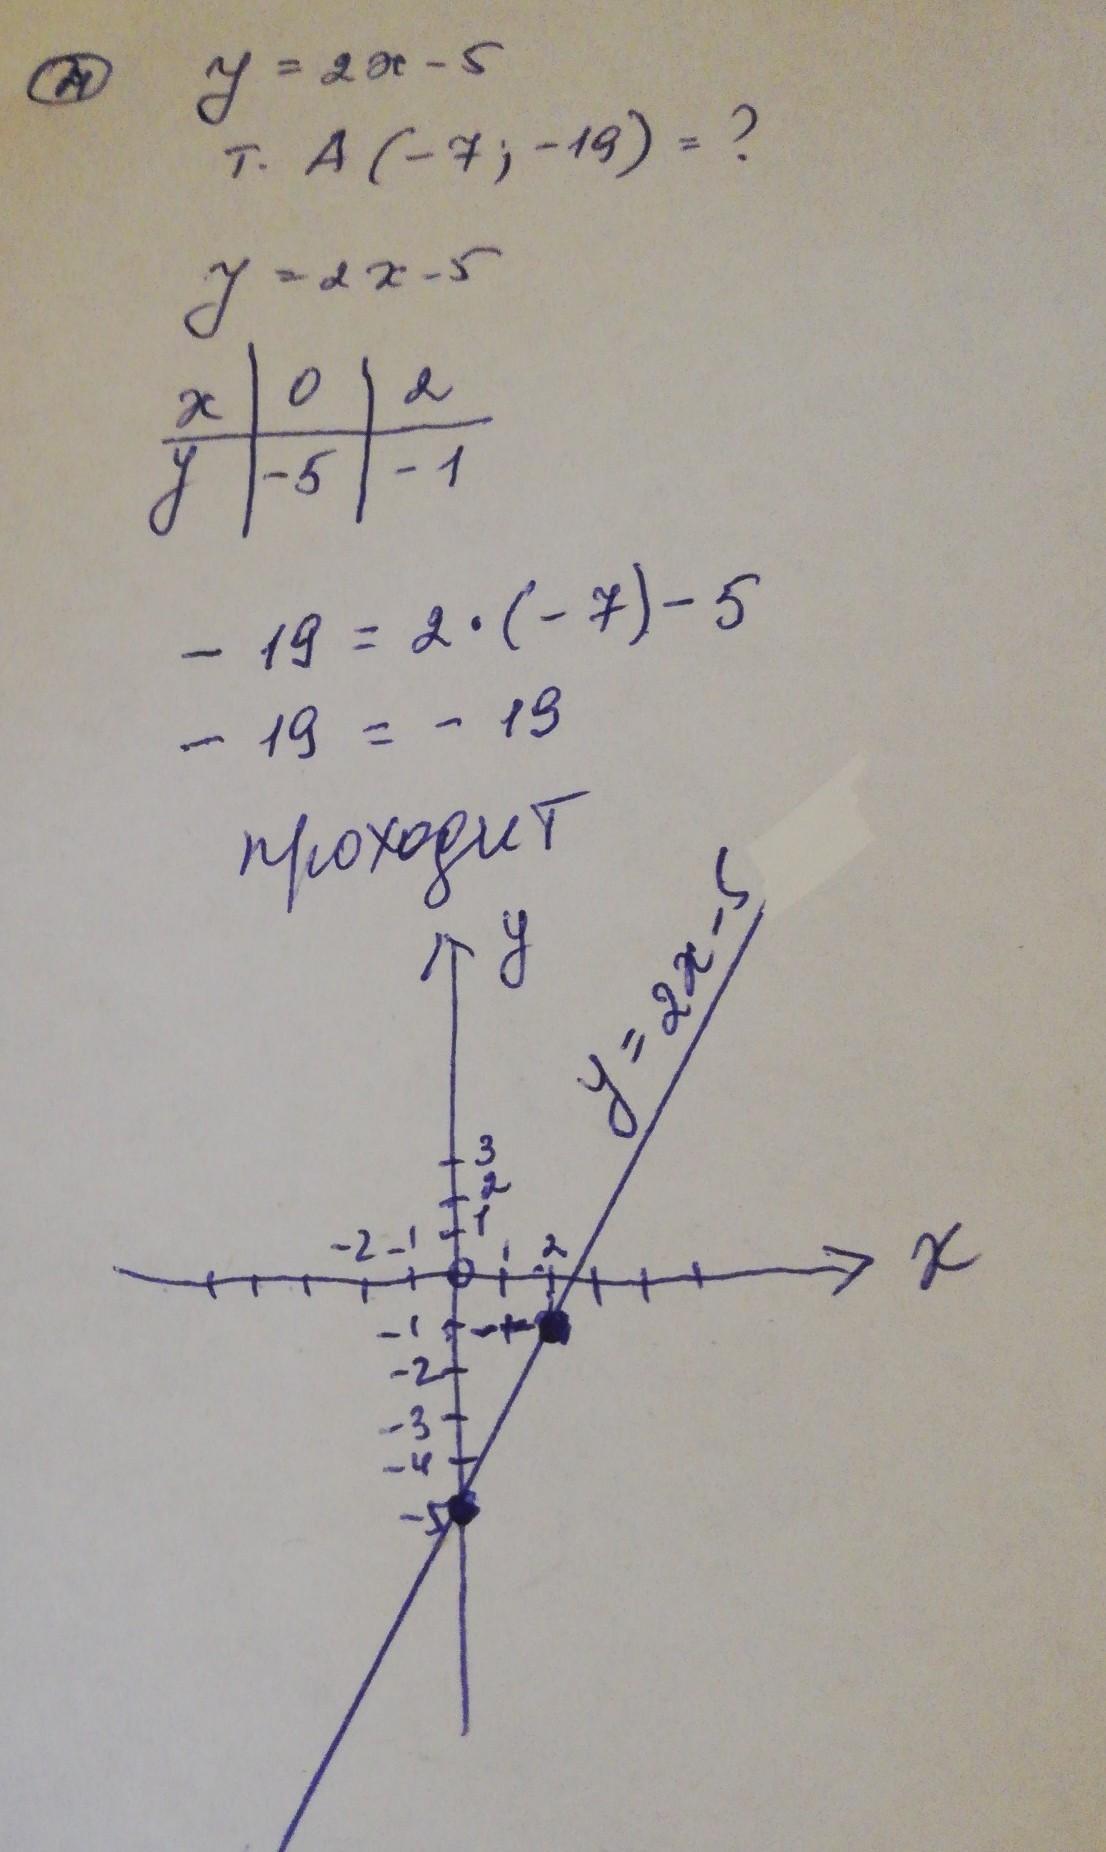 y = 2x - 5
т. A (-7; -19) = ?
y = 2x - 5
x | 0 | 2
y | -5 | -1
- 19 = 2 · (-7) - 5
- 19 = - 19
проходит
y
y = 2x - 5
3
2
1
-2 -1 0 1 2 x
-1
-2
-3
-4
-5